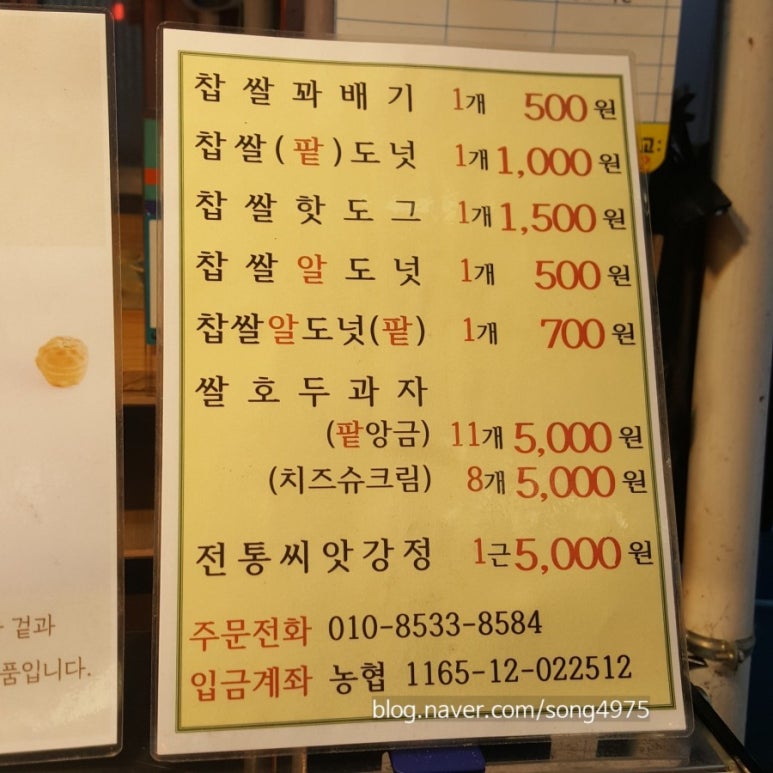 찹쌀꽈배기 1개 500원
찹쌀(팥)도넛 1개 1,000원
찹쌀핫도그 1개 1,500원
찹쌀알도넛 1개 500원
찹쌀알도넛(팥) 1개 700원
쌀호두과자
(팥앙금) 11개 5,000원
(치즈슈크림) 8개 5,000원
전통씨앗강정 1근 5,000원
주문전화 010-8533-8584
입금계좌 농협 1165-12-022512
blog.naver.com/song4975
겉과
품입니다.